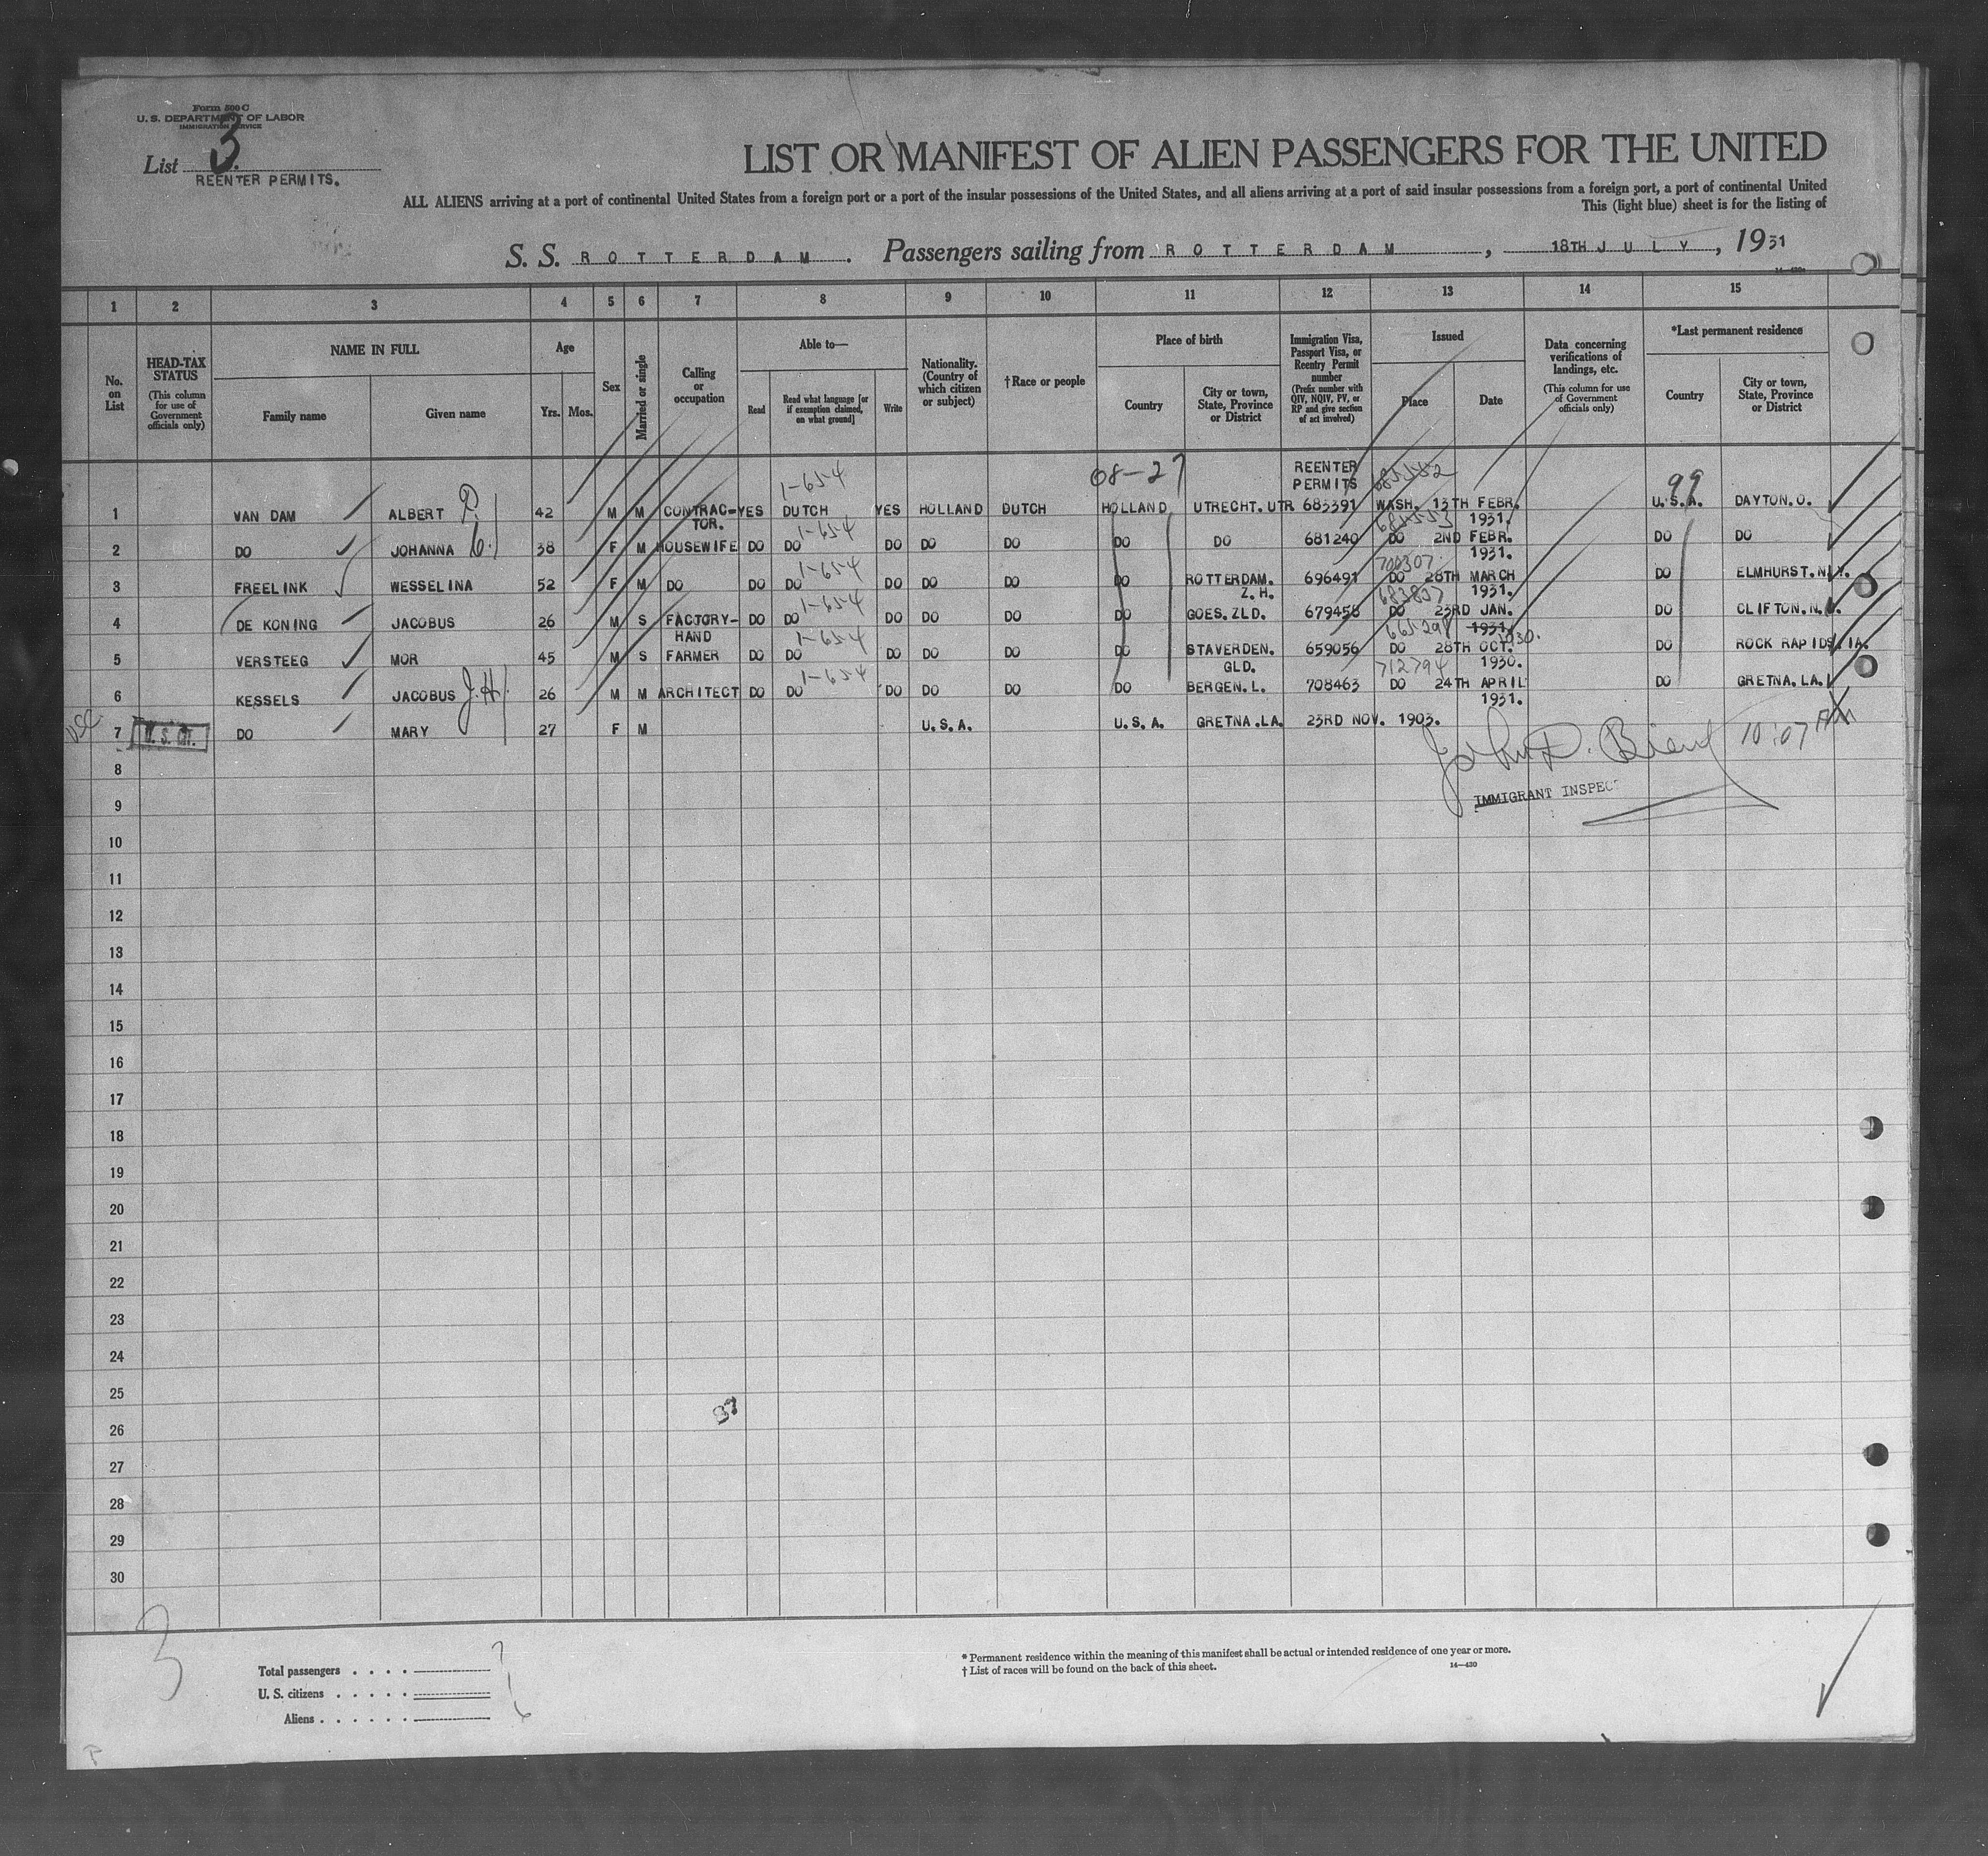 Form 500 C
U. S. DEPARTMENT OF LABOR
IMMIGRATION SERVICE
List 3.
REENTER PERMITS.
LIST OR MANIFEST OF ALIEN PASSENGERS FOR THE UNITED
ALL ALIENS arriving at a port of continental United States from a foreign port or a port of the insular possessions of the United States, and all aliens arriving at a port of said insular possessions from a foreign port, a port of continental United
This (light blue) sheet is for the listing of
S. S. ROTTERDAM. Passengers sailing from ROTTERDAM, 18TH JULY, 1931
1 2 3 4 5 6 7 8 9 10 11 12 13 14 15
No. on List
HEAD-TAX STATUS (This column for use of Government officials only)
NAME IN FULL
Family name
Given name
Age
Yrs. Mos.
Sex
Married or single
Calling or occupation
Able to—
Read
Read what language [or if exemption claimed, on what ground]
Write
Nationality. (Country of which citizen or subject)
†Race or people
Place of birth
Country
City or town, State, Province or District
Immigration Visa, Passport Visa, or Reentry Permit number (Prefix number with QIV, NQIV, PV, or RP and give section of act involved)
Issued
Place
Date
Data concerning verifications of landings, etc. (This column for use of Government officials only)
*Last permanent residence
Country
City or town, State, Province or District
1-654 08-27 REENTER PERMITS 685552 99
1 VAN DAM ALBERT P. 42 M M CONTRAC-TOR. YES DUTCH YES HOLLAND DUTCH HOLLAND UTRECHT. UTR 683391 WASH. 13TH FEBR. 1931. U.S.A. DAYTON.O.
1-654 685553
2 DO JOHANNA C. 38 F M HOUSEWIFE DO DO DO DO DO DO DO 681240 DO 2ND FEBR. 1931. DO DO
1-654 700307
3 FREELINK WESSELINA 52 F M DO DO DO DO DO DO DO ROTTERDAM. Z.H. 696491 DO 26TH MARCH 1931. DO ELMHURST.N.Y.
1-654 683807
4 DE KONING JACOBUS 26 M S FACTORY-HAND DO DO DO DO DO DO GOES. ZLD. 679456 DO 23RD JAN. 1931. DO CLIFTON.N.J.
1-654 665298 1930.
5 VERSTEEG MOR 45 M S FARMER DO DO DO DO DO DO STAVERDEN. GLD. 659056 DO 28TH OCT. 1930. DO ROCK RAPIDS.IA.
1-654 712794
6 KESSELS JACOBUS J.H. 26 M M ARCHITECT DO DO DO DO DO DO BERGEN. L. 708463 DO 24TH APRIL 1931. DO GRETNA. LA.
USC 7 U. S. CIT. DO MARY 27 F M U.S.A. U.S.A. GRETNA.LA. 23RD NOV. 1903.
John D. 10:07 AM
IMMIGRANT INSPEC
8
9
10
11
12
13
14
15
16
17
18
19
20
21
22
23
24
25
26
27
28
29
30
37
3
Total passengers . . . . 7
U. S. citizens . . . . . 1
Aliens . . . . . . 6
* Permanent residence within the meaning of this manifest shall be actual or intended residence of one year or more.
† List of races will be found on the back of this sheet. 14—430